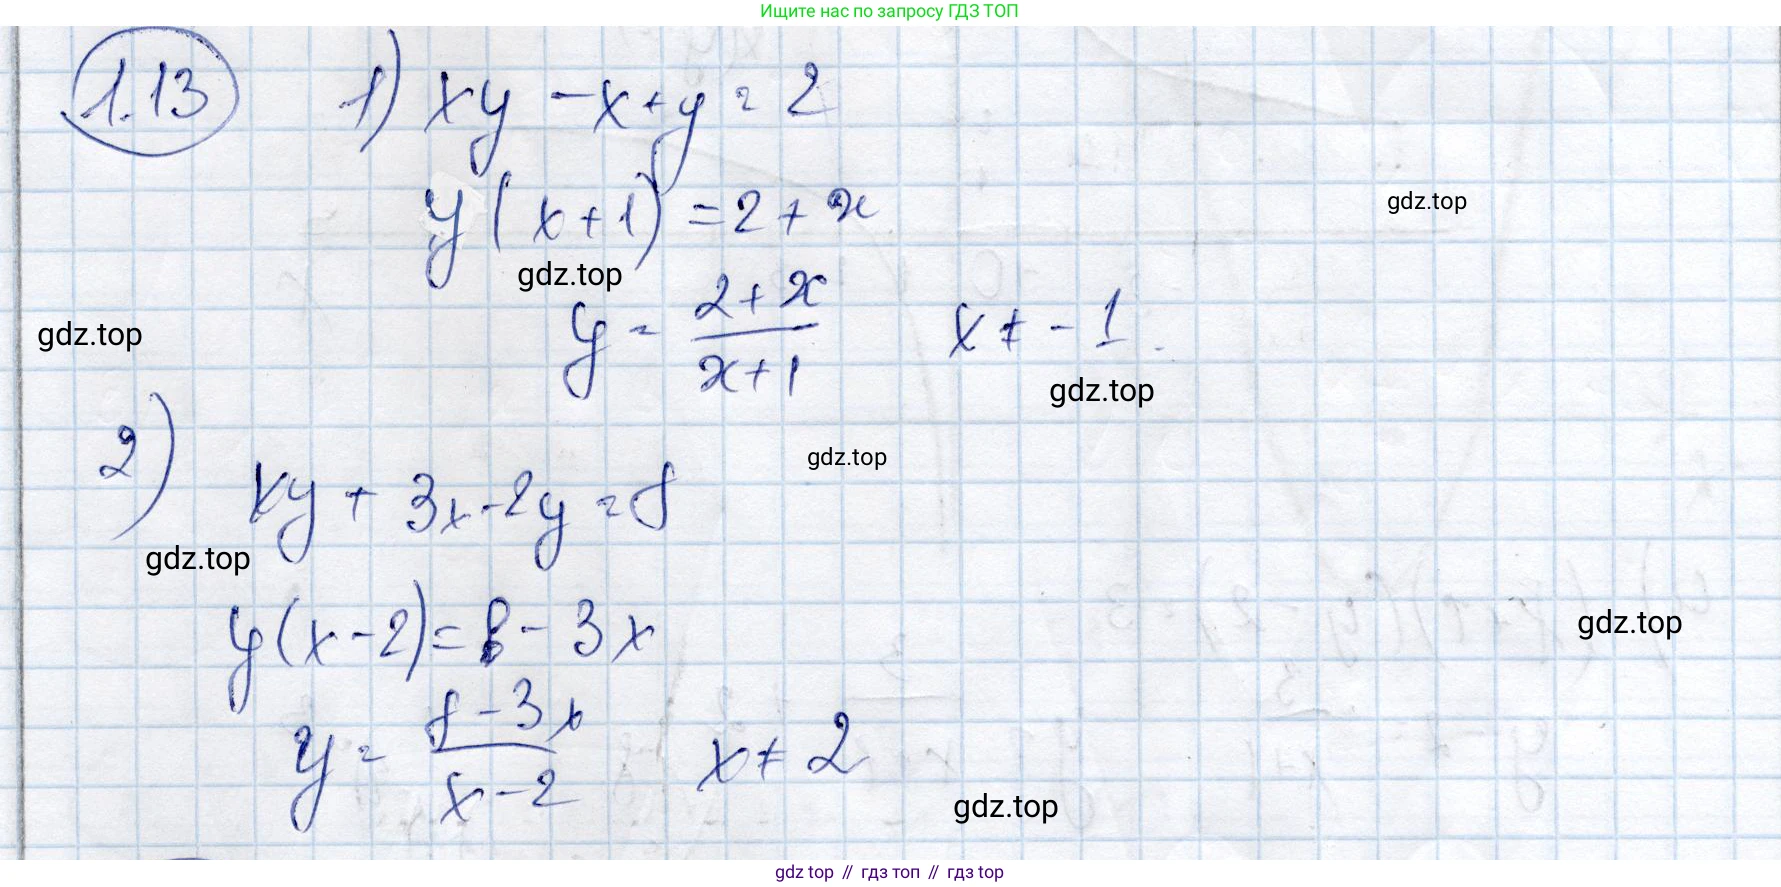 Ищите нас по запросу ГДЗ ТОП
1.13 1) xy - x + y = 2
y(x+1) = 2 + x
gdz.top
gdz.top
y = \frac{2+x}{x+1} x ≠ -1.
gdz.top
gdz.top
2)
gdz.top
xy + 3x - 2y = 8
gdz.top
y(x-2) = 8 - 3x
gdz.top
y = \frac{8-3x}{x-2} x ≠ 2
gdz.top
gdz top // гдз топ // gdz top